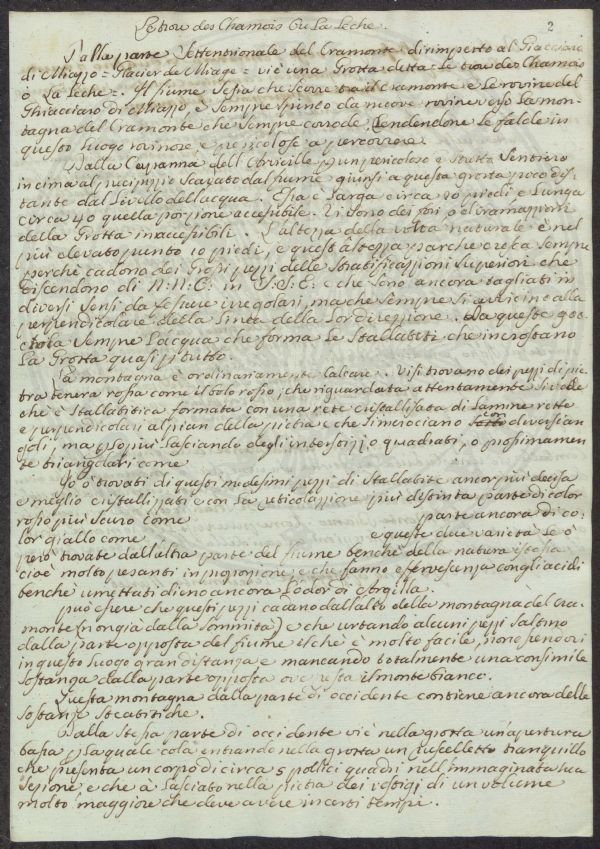 Le trou des Chamois Ou La Leche. 2
Dalla parte Settentrionale del Cramonte dirimperto al Giacciaro
di Miazzo = Glacier de Miage = vi è una Grotta detta = Le trou des Chamois
o La Leche =. Il fiume Stesso che scorre tra il Cramonte e Le rovine del
Ghiacciaro di Miazzo è sempre spinto da nuove rovine verso La mon-
tagna del Cramonte che sempre corrode, rendendone Le falde in
questo luogo rovinose, e pericolose a percorrere.
Dalla Capanna dell' per un pericoloso e stretto Sentiero
in cima al precipizio scavato dal fiume giunsi a questa grotta poco dis-
tante dal Livello dell'acqua. Essa è Larga circa 20 piedi e Lunga
circa 40 quella porzione accessibile. Vi sono dei fori o diramazzioni
della Grotta inaccessibili. L'altezza della volta naturale è nel
più elevato punto 10 piedi, e quest'altezza parche cresca sempre
perchè cadono dei Grossi pezzi delle Stratificazzioni Superiori che
discendono di N.N.E. in S.S.E. e che sono ancora tagliati in
diversi Sensi da fessure irregolari, ma che sempre si avvicinano alla
perpendicolare della Linea della Lor direzzione. Da queste goc-
ciola sempre L'acqua che forma le Stallatiti che incrostano
La Grotta quasi per tutto.
La montagna è ordinariamente Calcare. Visi trovano dei pezzi di pie-
tra tenera rossa come il bolo rosso, che riguardata attentamente si vede
che è Stallatitica formata con una rete cristallisata di Lamine rette
e perpendicolari al pian della pietra e che s'incrociano con diversi an-
goli, ma per lo più lasciando degli interstizzi o quadrati, o prossimamen-
te triangolari come
Io ò trovati di questi medesimi pezzi di Stallatite ancor più decisa
e meglio cristallizzati e con La reticolazione più distinta parte di color
rosso più scuro come parte ancora di co-
lor giallo come e queste due varietà Le ò
però trovate dall'altra parte del fiume benchè della natura istessa
cioè molto pesanti in proporzione, e che fanno effervescenza con gli acidi
benchè umettati dieno ancora L'odor di Argilla.
Può essere che questi pezzi cadano dall'alto della montagna del Cra-
monte (non già dalla sommità) e che urtando alcuni pezzi saltino
dalla parte opposta del fiume il chè è molto facile, non essendovi
in questo luogo gran distanza e mancando totalmente una consimile
sostanza dalla parte opposta ove resta il monte bianco.
Questa montagna dalla parte di occidente contiene ancora delle
sostanze Steatitiche.
Dalla stessa parte di occidente vi è nella grotta un'apertura
bassa per La quale cola entrando nella grotta un ruscelletto tranquillo
che presenta un corpo di circa 5 pollici quadri nell'immaginata sua
sezione, e che à Lasciato nella pietra dei vestigi di un volume
molto maggiore che deve avere in certi tempi.